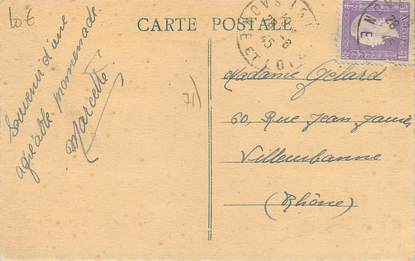 10€
CARTE POSTALE
Souvenir d'une
agréable promenade.
Marcelle
71)
Madame Gelard
60, Rue Jean Jaurès
Villeurbanne
(Rhône)